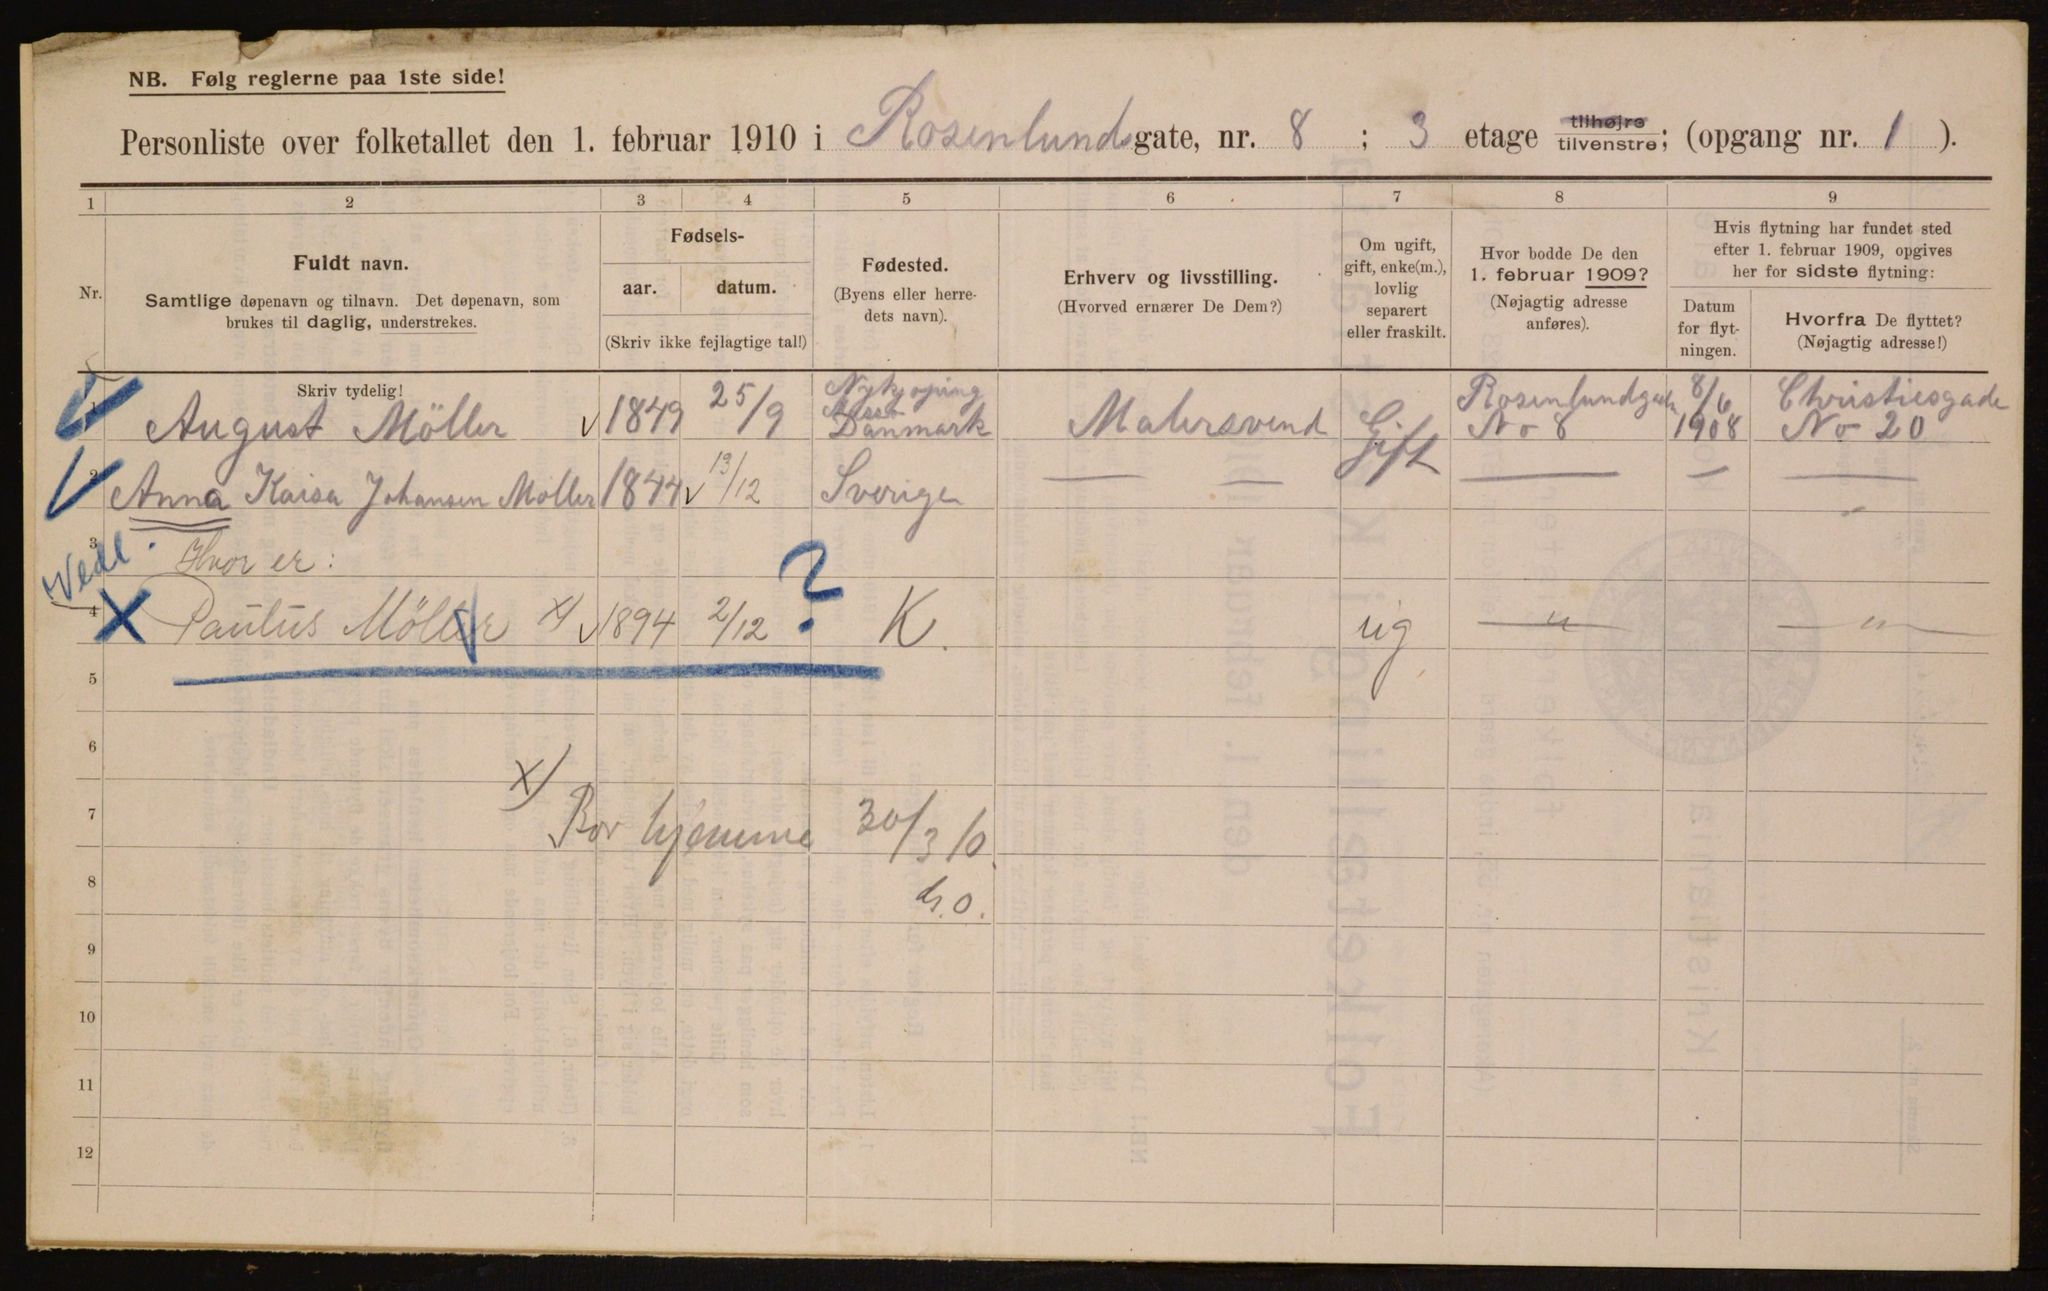 NB. Følg reglerne paa 1ste side!
Personliste over folketallet den 1. februar 1910 i Rosenlunds gate, nr. 8 ; 3 etage tilhøjre tilvenstre; (opgang nr. 1 ).
1 2 3 4 5 6 7 8 9
Nr.
Fuldt navn.
Samtlige døpenavn og tilnavn. Det døpenavn, som
brukes til daglig, understrekes.
Skriv tydelig!
Fødsels-
aar. datum.
(Skriv ikke fejlagtige tal!)
Fødested.
(Byens eller herre-
dets navn).
Erhverv og livsstilling.
(Hvorved ernærer De Dem?)
Om ugift,
gift, enke(m.),
lovlig
separert
eller fraskilt.
Hvor bodde De den
1. februar 1909?
(Nøjagtig adresse
anføres).
Hvis flytning har fundet sted
efter 1. februar 1909, opgives
her for sidste flytning:
Datum
for flyt-
ningen.
Hvorfra De flyttet?
(Nøjagtig adresse!)
1 August Möller 1849 25/9 Nykjøping Danmark Malersvend Gift Rosenlundgade No 8 8/6 1908 Christiesgade No 20
2 Anna Kaisa Johansen Möller 1844 13/12 Sverige — — — — —
3 Hvor er:
Vedl.
4 Paulus Möller x) 1894 2/12 ? K. ug — " — — " —
5
6
x)
7 Bor hjemme 30/3 10.
8
9
10
11
12